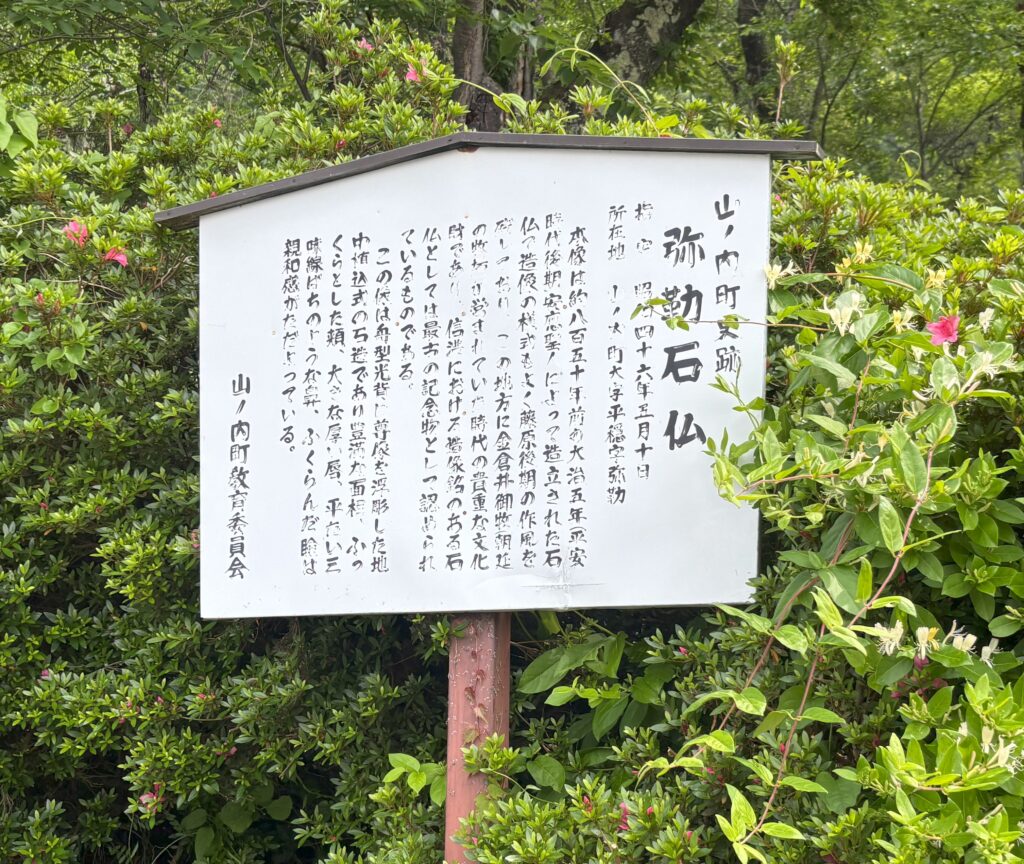 山ノ内町史跡
弥勒石仏
指定 昭和四十六年三月十日
所在地 山ノ内町大字平穏字弥勒
本像は約八百五十年前の大治五年(平安
時代後期・安応聖人によって造立された石
仏で造像の様式もよく藤原後期の作風を
この地方に金倉井御牧が朝廷
の時代の貴重な文化
財であり、信濃における造像銘のある石
仏としては最古の記念物として認められ
ているものである。
この像は舟型光背に尊像を浮彫した地
中埋込式の石造であり豊満な面相、ふっ
くらとした頬、大きな厚い唇、平たい三
味線ばちのような鼻、ふくらんだ瞼は
親和感がただよっている。
山ノ内町教育委員会